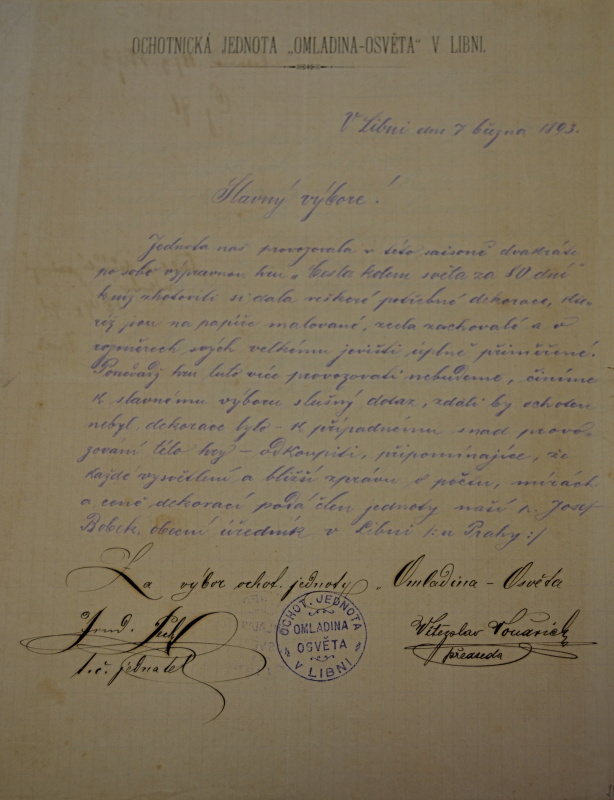 OCHOTNICKÁ JEDNOTA „OMLADINA-OSVĚTA" V LIBNI.
V Libni dne 7 března 1893.
Slavný výbore!
Jednota naš provozovala v této saisoně dvakráte
po sobě výpravnou hru „Cesta kolem světa za 80 dní
k níž zhotoviti si dala veškeré potřebné dekorace, kte-
réž jsou na papíře malované, zcela zachovalé a v
rozměrech svých velkému jevišti úplně přiměřené.
Poněvadž hru tuto více provozovati nebudeme, činíme
k slavnému výboru slušný dotaz, zdali by ochoten
nebyl dekorace tyto - k případnému snad provo-
zovaní této hry - odkoupiti, připomínajíce, že
každé vysvětlení a bližší zprávu o počtu, mírách
a ceně dekorací podá člen jednoty naší p. Josef
Bobek, obecní úředník v Libni /: u Prahy :/
Za výbor ochot. jednoty „Omladina - Osvěta
t. č. jednatel
Vítězslav
předseda
OCHOT. JEDNOTA
OMLADINA
OSVĚTA
V LIBNI